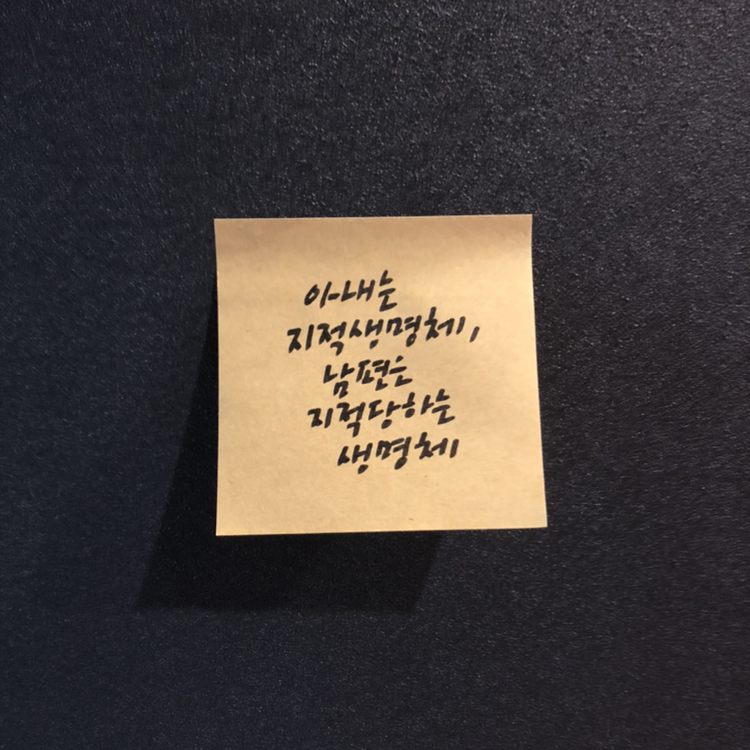 아내는
지적생명체,
남편은
지적당하는
생명체